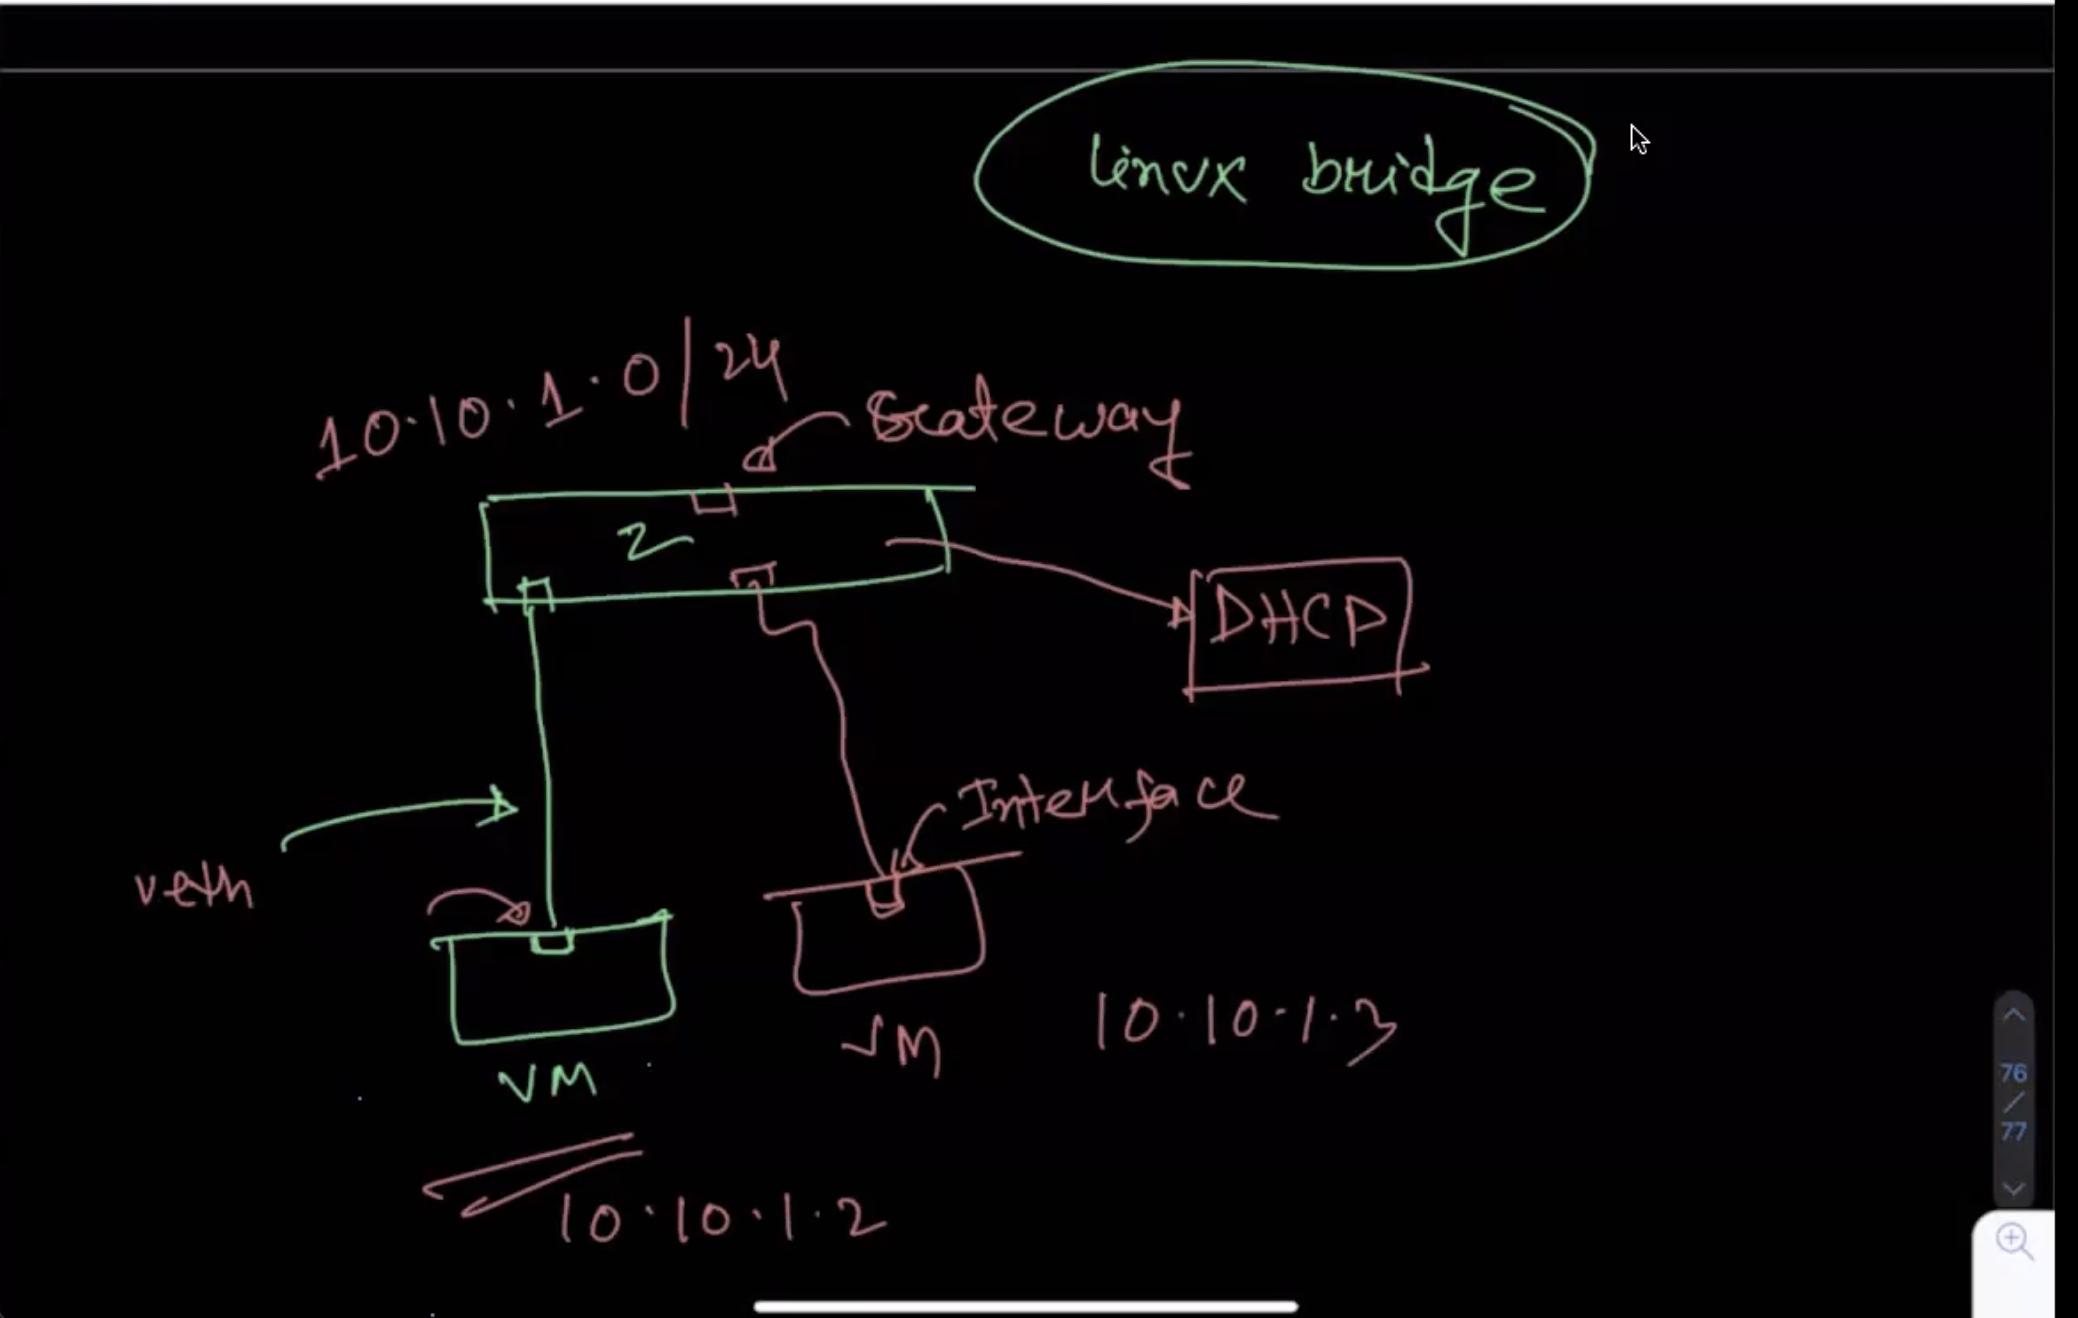 linux bridge
10.10.1.0/24
Gateway
2
DHCP
Interface
veth
VM
10.10.1.3
VM
10.10.1.2
76
/
77